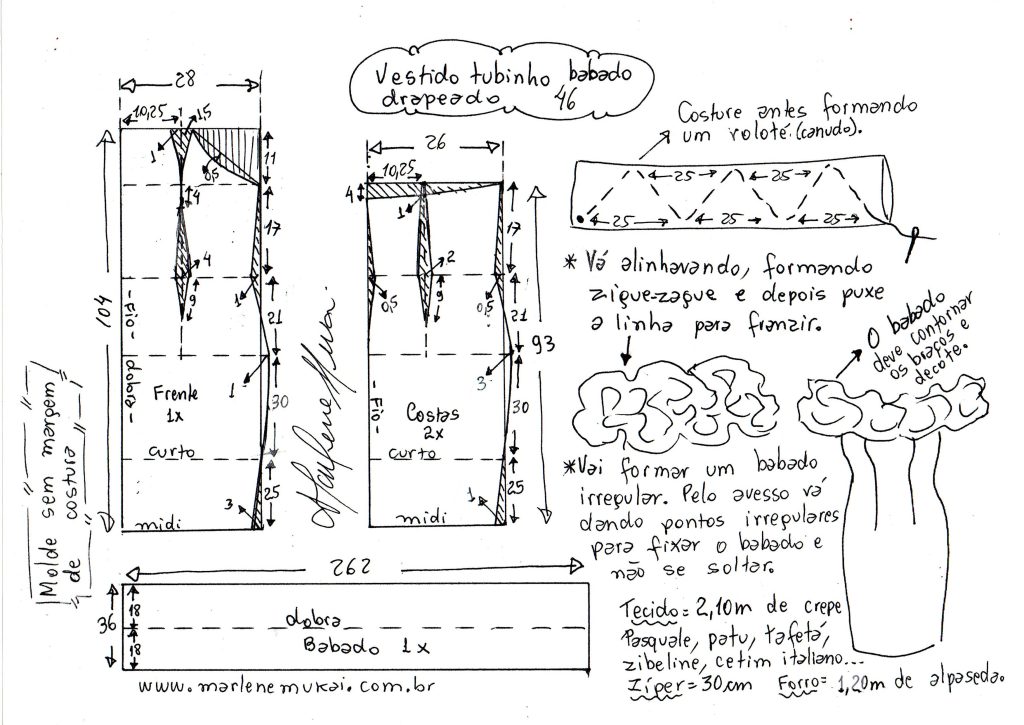 Vestido tubinho babado
drapeado 46
28
10,25
1,5
1
0,5
11
4
17
4
9
1
21
1
30
25
3
104
-Fio-
dobra-
Frente
1x
curto
midi
26
10,25
4
1
17
2
9
0,5
0,5
21
3
30
25
1
93
-Fio-
Costas
2x
curto
midi
Marlene Mukai
Molde sem margem
de costura
Costure antes formando
um roloté (canudo).
25
25
25
25
25
* Vá alinhavando, formando
zigue-zague e depois puxe
a linha para franzir.
O babado
deve contornar
os braços e
decote.
*Vai formar um babado
irregular. Pelo avesso vá
dando pontos irregulares
para fixar o babado e
não se soltar.
262
36
18
18
dobra
Babado 1x
www.marlenemukai.com.br
Tecido= 2,10m de crepe
Pasquale, patu, tafetá,
zibeline, cetim italiano...
Zíper= 30cm Forro= 1,20m de alpaseda.